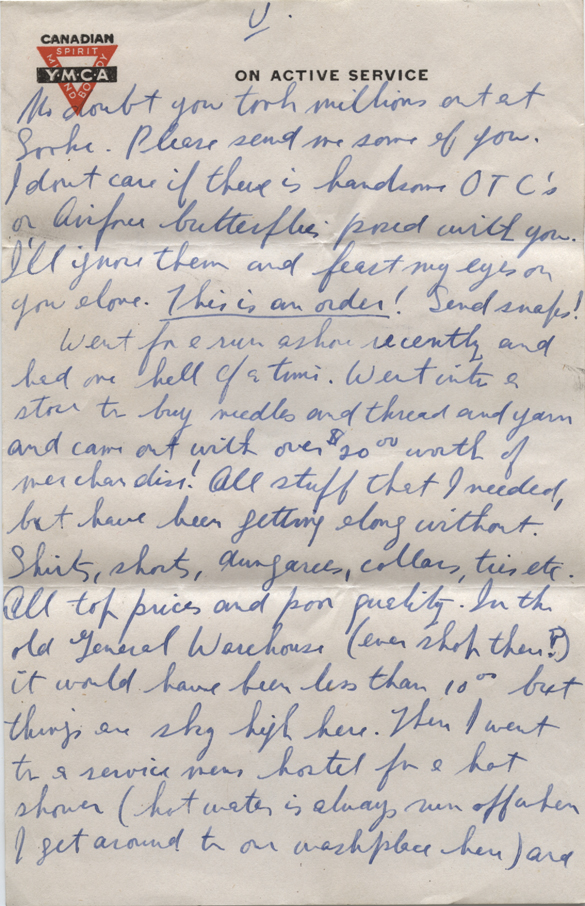 V.
CANADIAN
SPIRIT
MIND BODY
Y·M·C·A
ON ACTIVE SERVICE
No doubt you took millions out at
Sooke. Please send me some of you.
I dont care if there is handsome OTC's
or Airforce butterflies posed with you.
I'll ignore them and feast my eyes on
you alone. This is an order! Send snaps!
Went for a run ashore recently and
had one hell of a time. Went into a
store to buy needles and thread and yarn
and came out with over $20.00 worth of
merchandise! All stuff that I needed,
but have been getting along without.
Shirts, shorts, dungarees, collars, ties etc.
All top prices and poor quality. In the
old General Warehouse (ever shop there?)
it would have been less than 10.00 but
things are sky high here. Then I went
to a service mens hostel for a hot
shower (hot water is always run off when
I get around to our washplace here) and